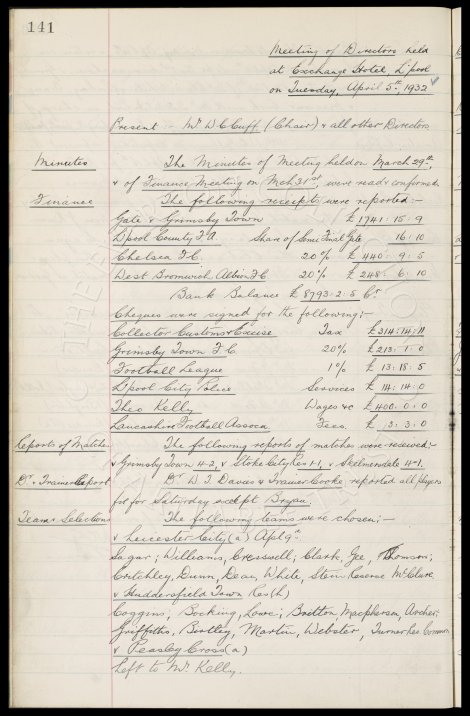 141
Meeting of Directors held
at Exchange Hotel, L'pool
on Tuesday, April 5th, 1932
Present :- Mr W C Cuff, (Chair) & all other Directors
Minutes
The Minutes of Meeting held on March 29th,
& of Finance Meeting on Mch 31st, were read & confirmed.
Finance
The following receipts were reported:-
Gate v Grimsby Town £1741 : 15 : 9
L'pool County F.A. Share of Semi Final Gate 16 : 10
Chelsea F.C. 20% £ 440 : 9 : 5
West Bromwich Albion F.C 20% £ 248 : 6 : 10
Bank Balance £ 8793 : 2 : 5 Cr.
Cheques were signed for the following:-
Collector Customs & Excise Tax £314 : 14 : 11
Grimsby Town F.C. 20% £213 : 1 : 0
Football League 1% £ 13 : 18 : 5
L'pool City Police Services £ 14 : 14 : 0
Theo Kelly Wages &c £400 : 0 : 0
Lancashire Football Assocn Fees. £ 3 : 3 : 0
Reports of Matches
The following reports of matches were received:-
v Grimsby Town 4-2, v Stoke City Res 1-1, v Skelmersdale 4-1.
Dr. & Trainers Report
Dr. W. J. Davies & Trainer Cooke reported all players
fit for Saturday except Bryan.
Teams Selections
The following teams were chosen;-
v Leicester City (a) Apl 9th.
Sagar; Williams, Cresswell; Clark, Gee, Thomson;
Critchley, Dunn, Dean, White, Stein Reserve McClure
v Huddersfield Town Res (h)
Coggins; Bocking, Lowe; Britton, Macpherson, Archer;
Griffiths, Bentley, Martin, Webster, Turner res. Common
v Peasley Cross (a)
Left to Mr Kelly.